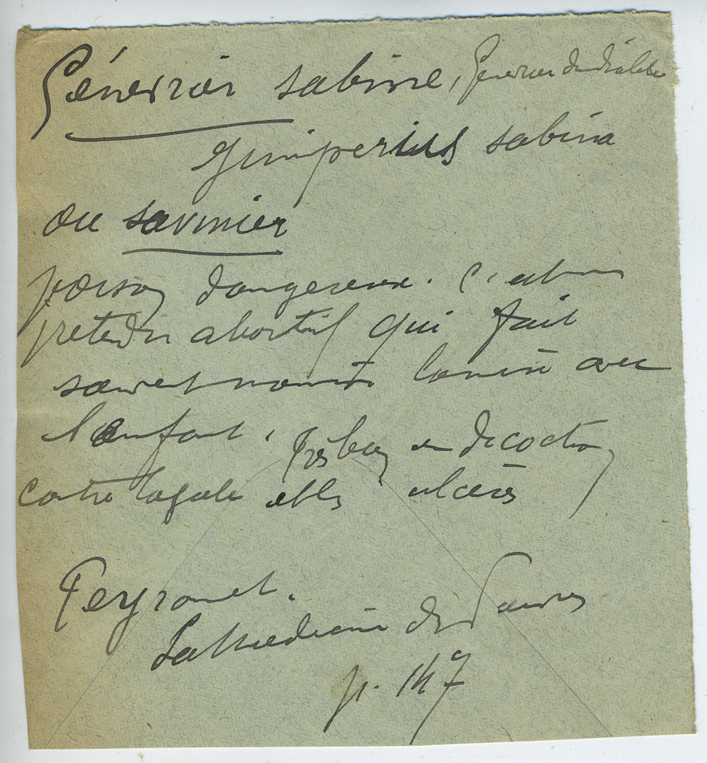 Génévrier sabine, Genevrier du diable
Juniperius sabina
ou savinier
poison dangereux. C'est un
pretendu abortif qui fait
souvent mourir la mère avec
l'enfant. Très bon en décoction
contre la gale et les ulcères
Peyronet.
La Médecine des Pauvres
p. 147